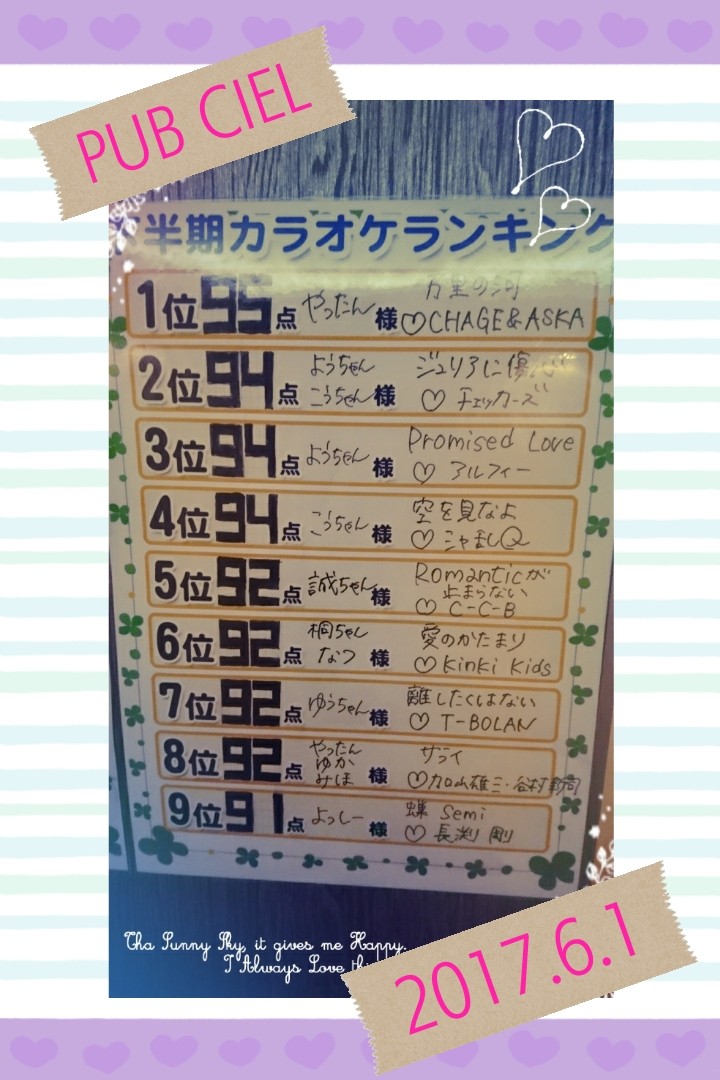 PUB CIEL
半期カラオケランキング
1位 95点 やったん 様 万里の河
♡CHAGE&ASKA
2位 94点 ようちゃん こうちゃん 様 ジュリアに傷心
♡ チェッカーズ
3位 94点 ようちゃん 様 Promised Love
♡ アルフィー
4位 94点 こうちゃん 様 空を見なよ
♡ シャ乱Q
5位 92点 誠ちゃん 様 Romanticが
止まらない
♡ C-C-B
6位 92点 桐ちゃん なつ 様 愛のかたまり
♡ Kinki Kids
7位 92点 ゆうちゃん 様 離したくはない
♡ T-BOLAN
8位 92点 やったん ゆか みほ 様 サライ
♡加山雄三・谷村新司
9位 91点 よっしー 様 蝉 Semi
♡ 長渕 剛
Tha Sunny Sky, it gives me Happy.
I Always Love
2017.6.1